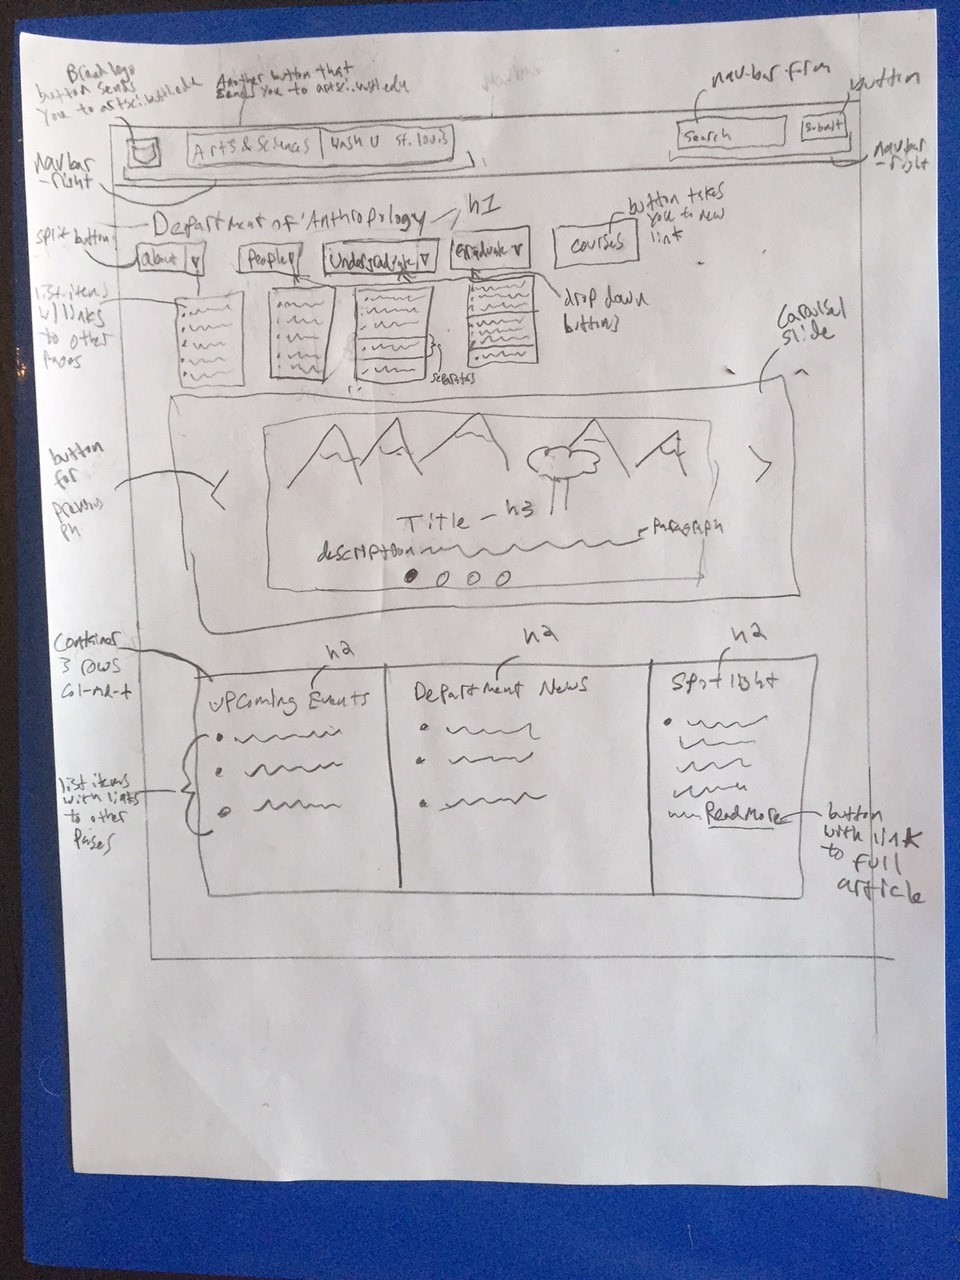 Brand logo
button sends
you to artsci.wustl.edu
Another button that
sends you to artsci.wustl.edu
nav-bar-from
button
Arts & Sciences | Wash U St. louis
Search
Submit
navbar
-right
navbar
-right
Department of Anthropology
h1
button takes
you to new
link
split button
about
People
Undergraduate
Graduate
courses
list items
w/ links
to other
Pages
drop down
buttons
separators
Carousel
slide
button
for
previous
Title - h3
description
Paragraph
Container
3 rows
Col-md-4
h2
h2
h2
Upcoming Events
Department News
Spotlight
list items
with links
to other
Pages
Read More
button
with link
to full
article